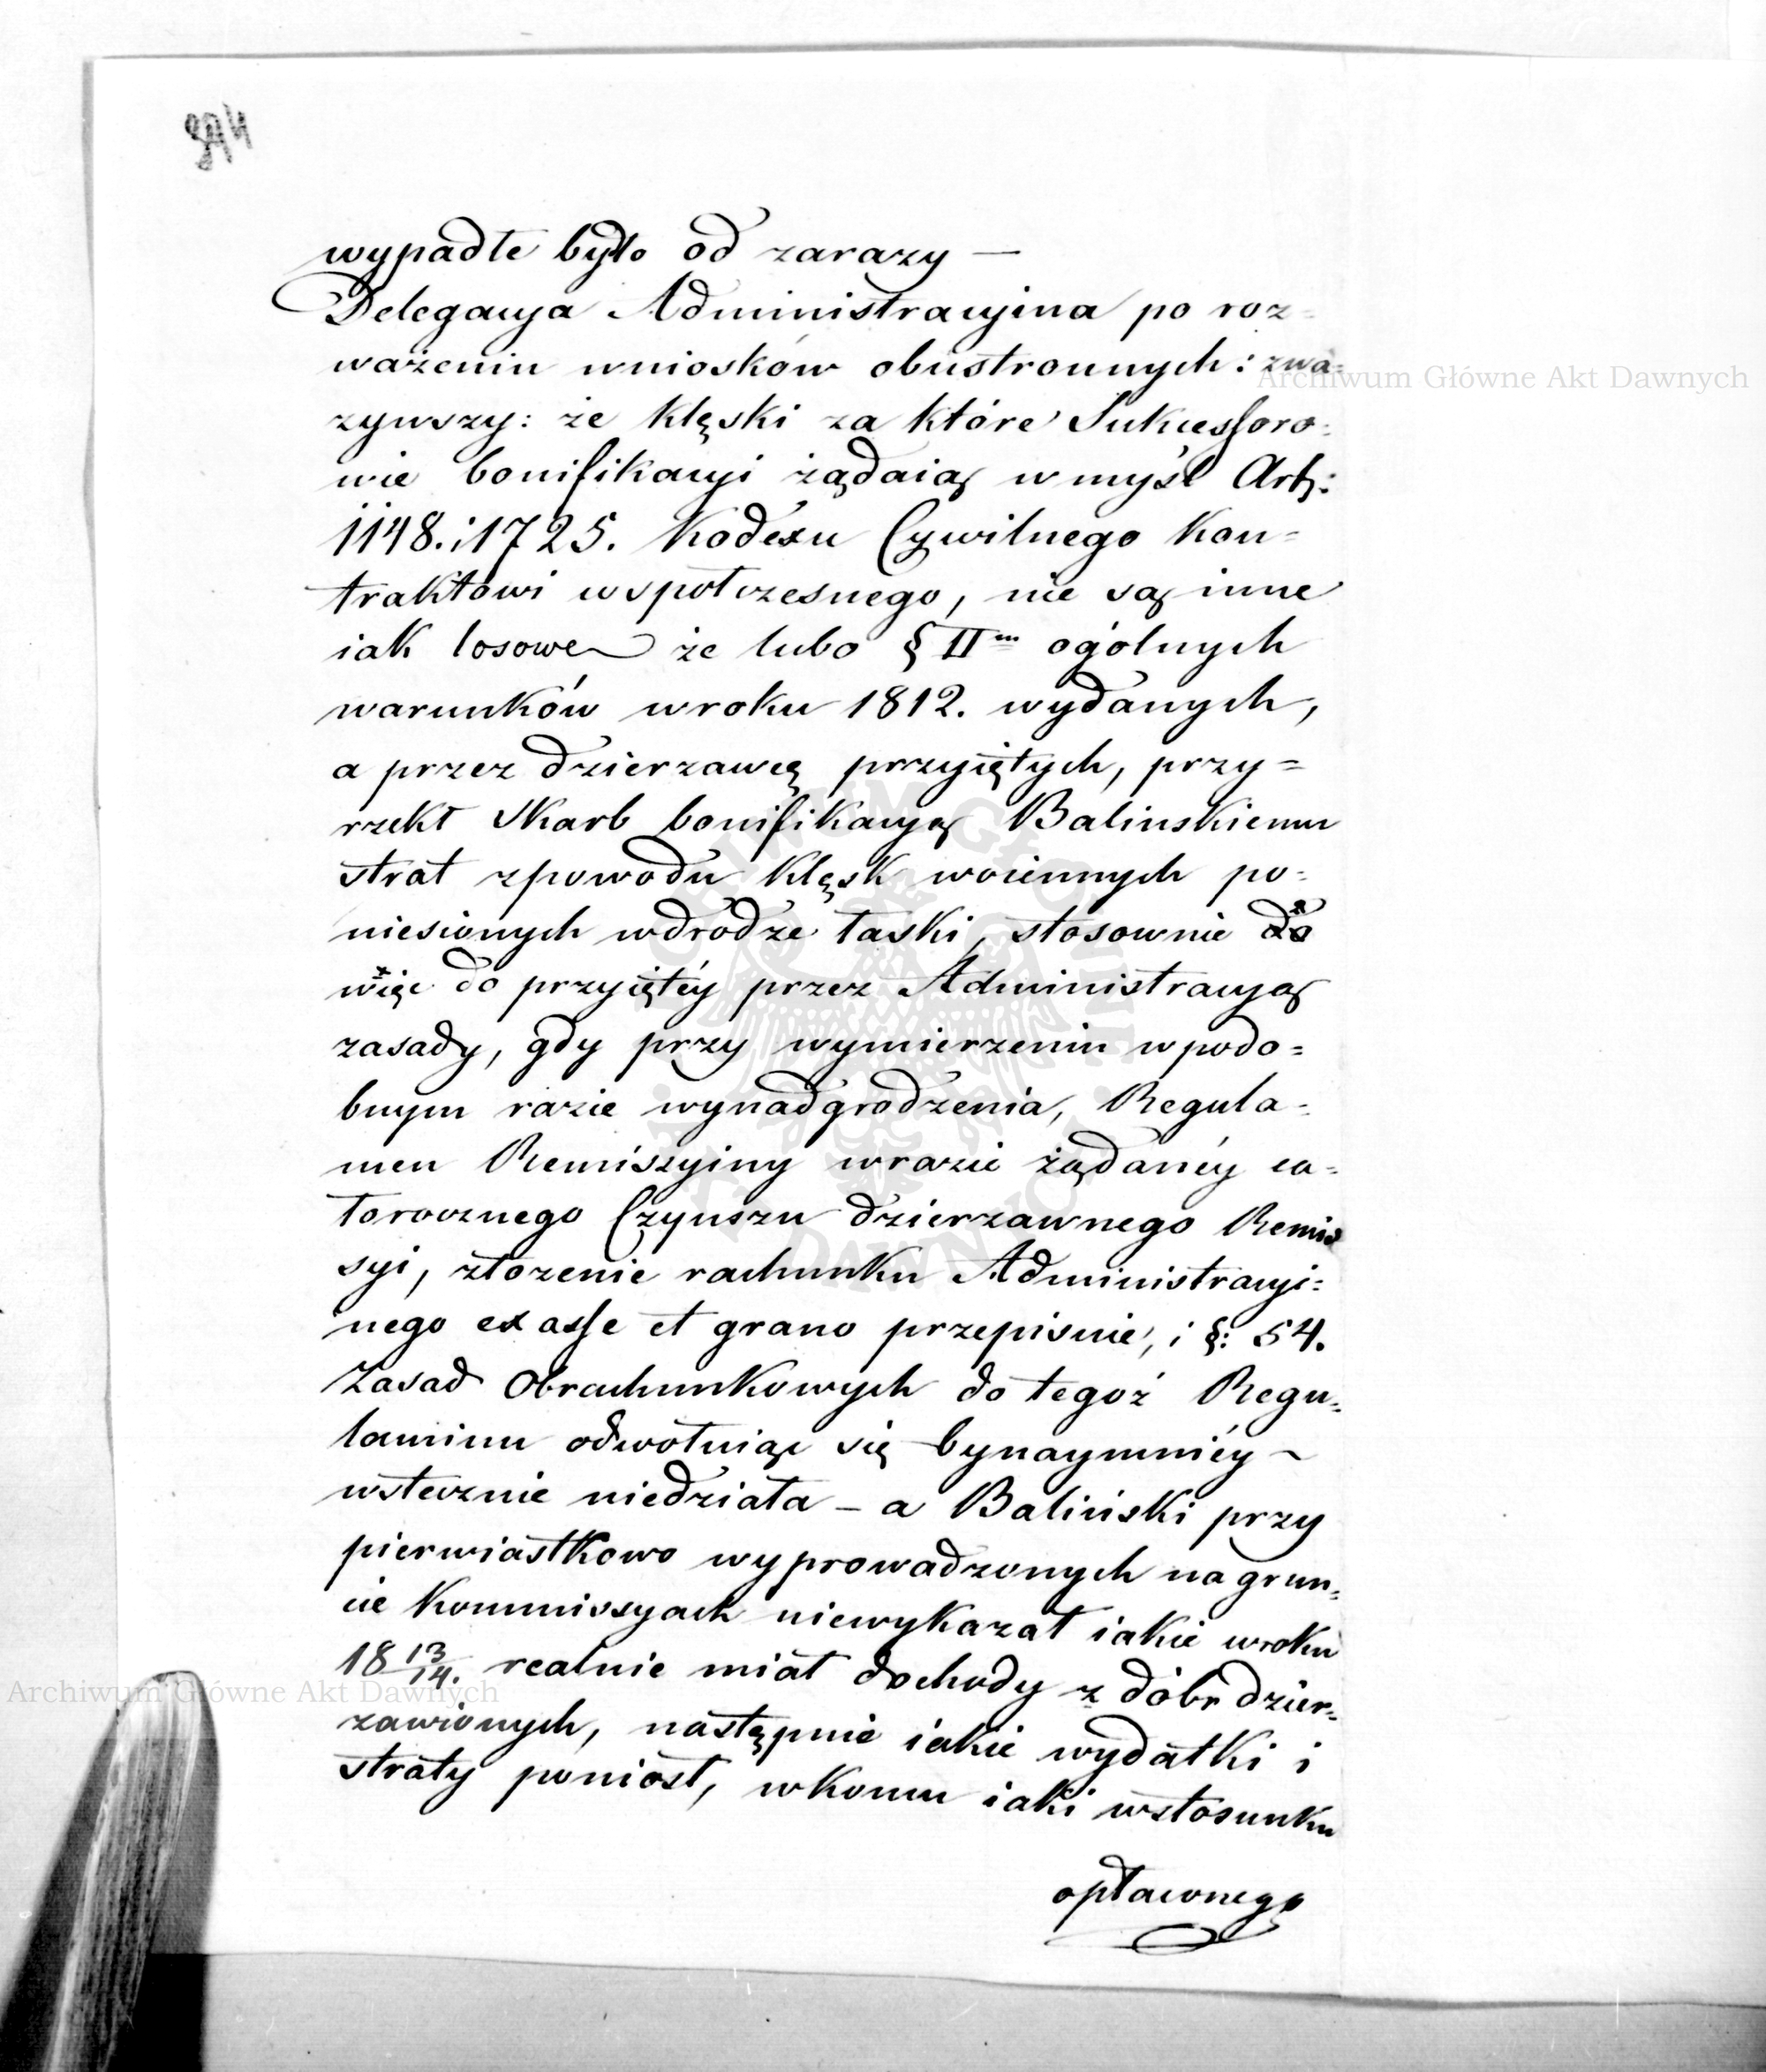 wypadłe było od zarazy —
Delegacyja Administracyina po roz=
ważeniu wniosków obustronnych: zwa=
żywszy: że klęski za które Sukcessoro=
wie bonifikacyi żądaią w myśl Art:
1148. i 1725. Kodexu Cywilnego Kon=
traktowi wspołczesnego, nie są inne
iak losowe — że lubo § II m ogólnych
warunków w roku 1812. wydanych,
a przez dzierzawcę przyiętych, przy=
rzekł Skarb bonifikacyą Balinskiemu
strat z powodu klęsk woiennych po=
niesionych w drodze łaski, stosownie do
więc do przyiętéy przez Administracyą
zasady, gdy przy wymierzeniu w podo=
bnym razie wynadgrodzenia, Regula=
men Remiszyiny w razie żądanéy ca=
łorocznego Czynszu dzierzawnego Remis
syi, złozenie rachunku Administracyi=
nego ex asse et grano przepisuie, i §: 54.
Zasad Obrachunkowych do tegoż Regu=
laminu odwołuiąc się bynaymniéy ~
wstecznie niedziała — a Baliński przy
pierwiastkowo wyprowadzonych na grun=
cie Kommissyach niewykazał iakie w roku
18 13/14. realnie miał dochody z dóbr dzier=
zawionych, następnie iakie wydatki i
straty poniósł, w komu iaki w stosunku
opławnego
Archiwum Główne Akt Dawnych
Archiwum Główne Akt Dawnych